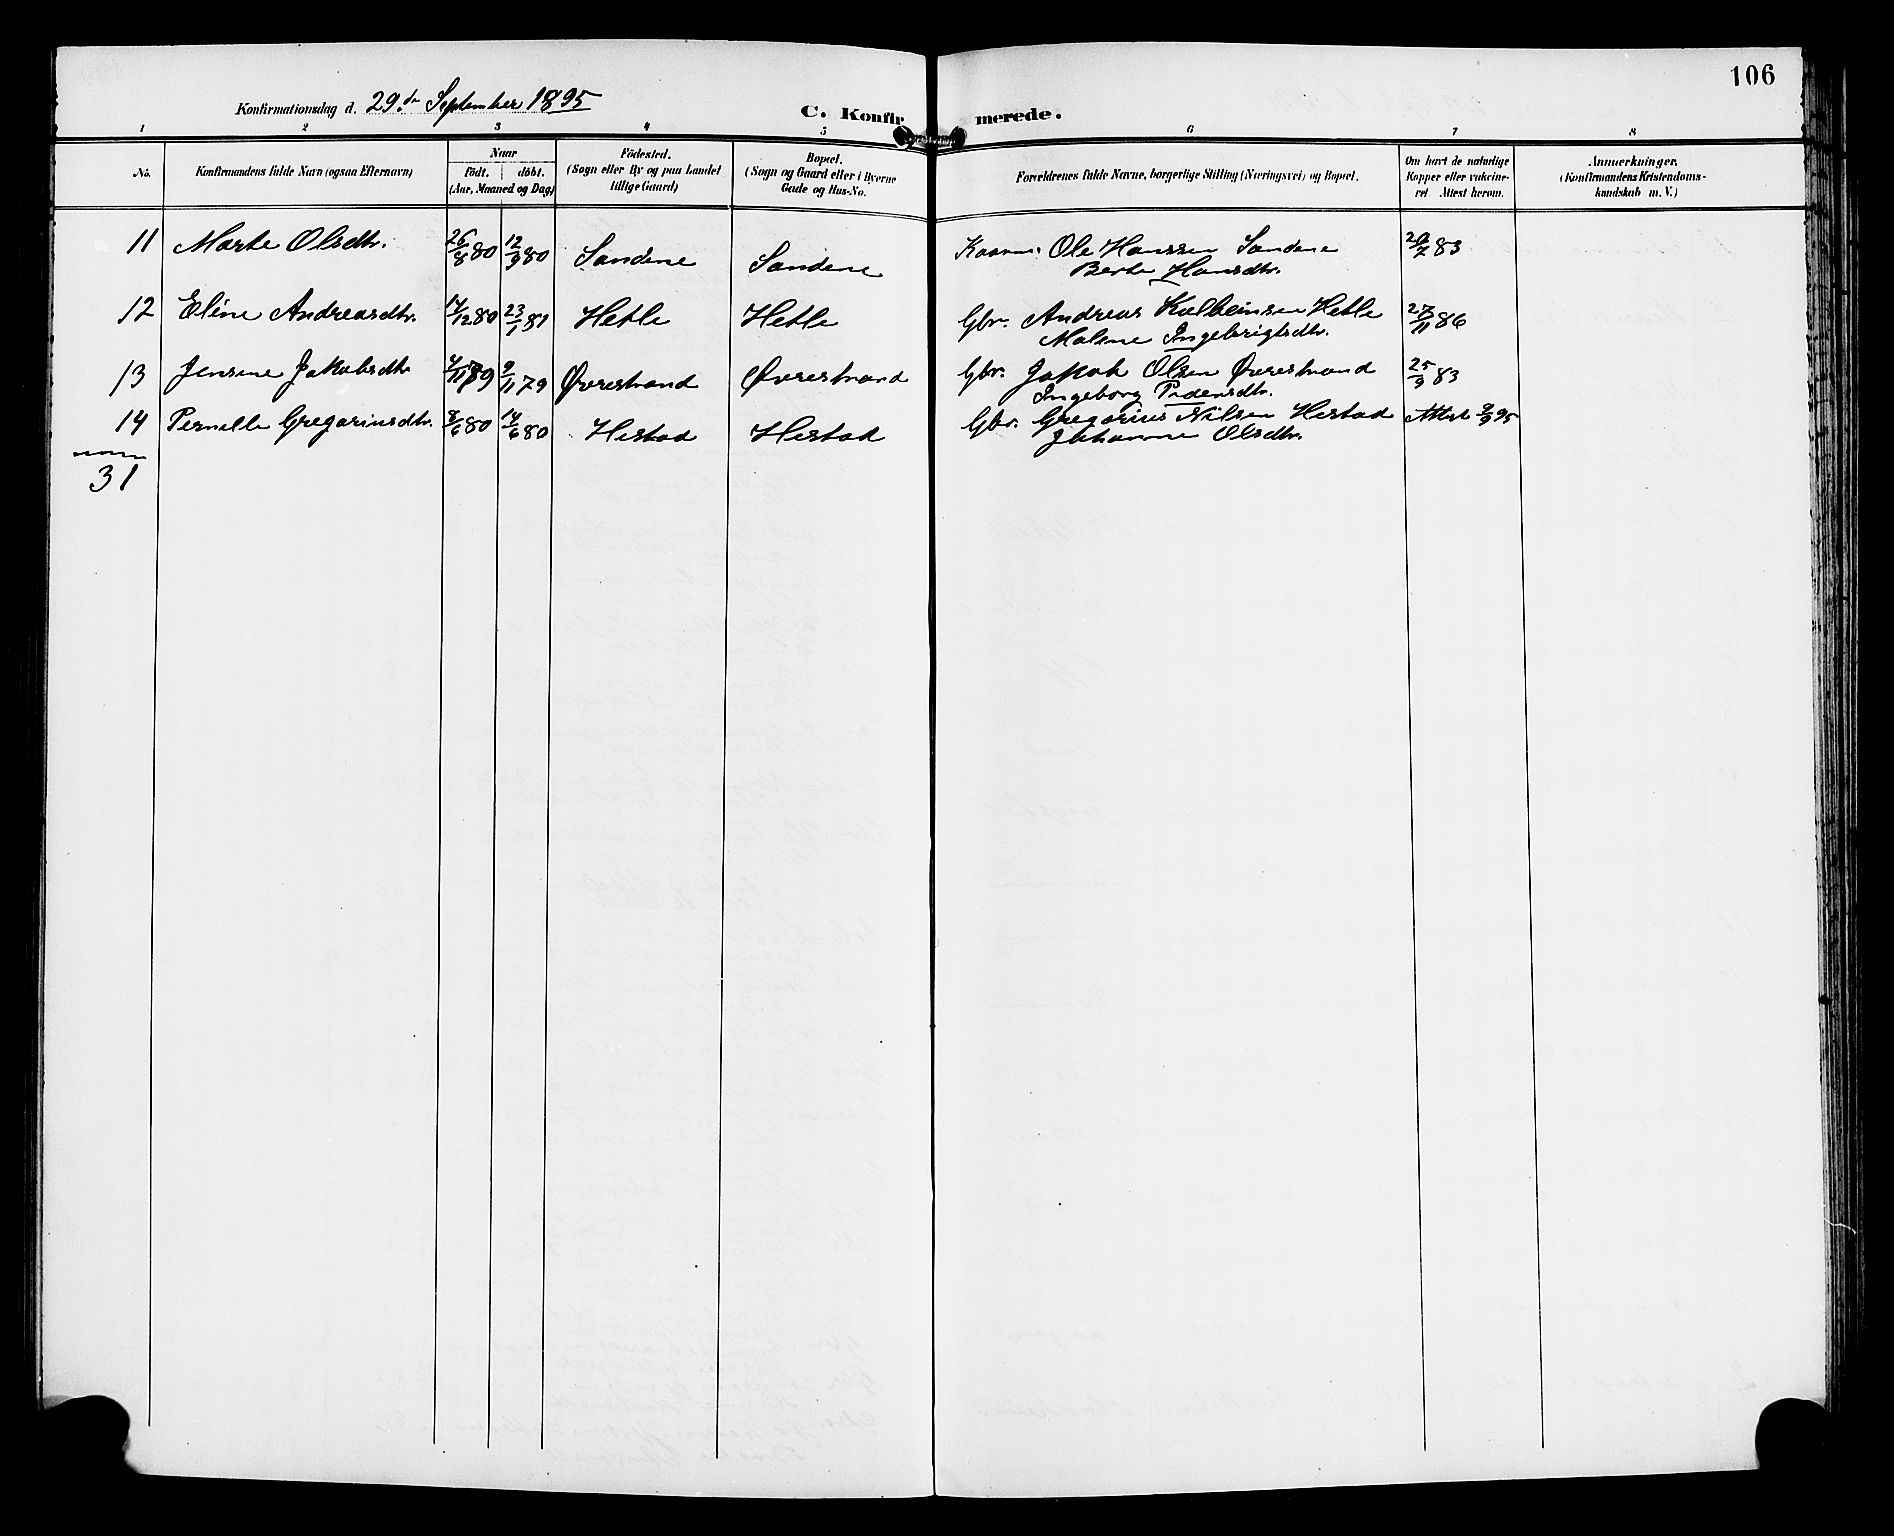 106
Konfirmationsdag d. 29.de September 1895
C. Konfirmerede.
1 2 3 4 5 6 7 8
No.
Konfirmandens fulde Navn (ogsaa Efternavn)
Naar
födt. döbt.
(Aar, Maaned og Dag)
Födested.
(Sogn eller By og paa Landet
tillige Gaard)
Bopæl.
(Sogn og Gaard eller i Byerne
Gade og Hus-No.
Forældrenes fulde Navne, borgerlige Stilling (Næringsvei) og Bopæl.
Om havt de naturlige
Kopper eller vakcine-
ret Attest herom.
Anmerkninger.
(Konfirmandens Kristendoms-
kundskab m. V.)
11 Marte Olsdtr. 26/8 80 12/9 80 Sandene Sandene Ole Hanssen Sandene 20/7 83
Berte Hansdtr.
12 Eline Andreasdtr. 17/12 80 23/1 81 Hetle Hetle Gbr. Andreas Kolbeinsen Hetle 27/11 86
Malene Ingebrigtsdtr.
13 Jensine Jakobsdtr 4/11 79 9/11 79 Øvrestrand Øvrestrand Gbr. Jakob Olsen Øvrestrand 25/9 83
Ingeborg Pedersdtr.
14 Pernille Gregoriusdtr. 8/6 80 14/6 80 Hestad Hestad Gbr. Gregorius Nilsen Hestad Attest 9/9 95
Johanne Olsdtr.
31